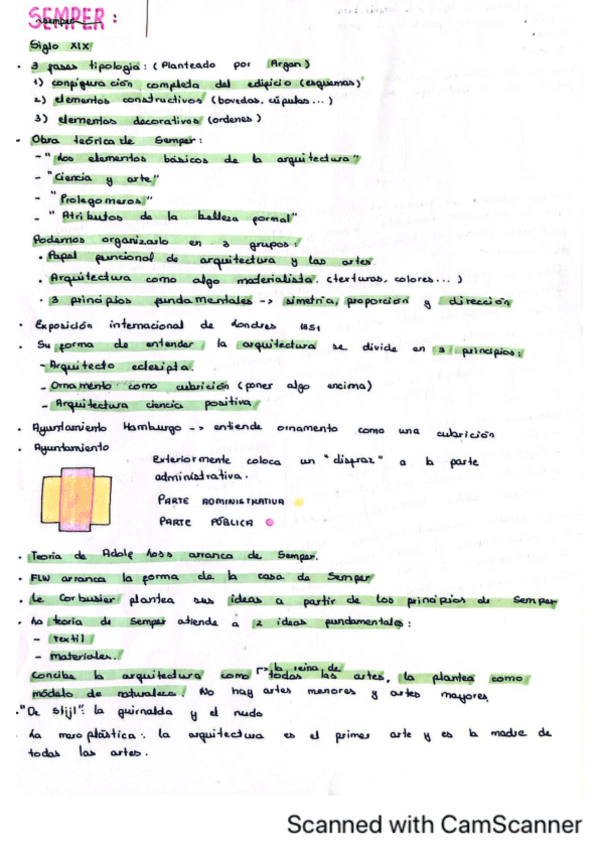 SEMPER:
Siglo XIX
· 3 fases tipología: (Planteado por Argan)
1) configuración completa del edificio (esquemas)
2) elementos constructivos (bovedas, cúpulas...)
3) elementos decorativos (ordenes)
· Obra teórica de Semper:
- "Los elementos básicos de la arquitectura"
- "Ciencia y arte"
- "Prolegomeros"
- "Atributos de la belleza formal"
Podemos organizarlo en 3 grupos:
· Papel funcional de arquitectura y las artes.
· Arquitectura como algo materialista. (texturas, colores...)
· 3 principios fundamentales -> simetría, proporción y dirección
· Exposición internacional de Londres 1851
· Su forma de entender la arquitectura se divide en 3 principios:
- Arquitecto eclespta.
- Ornamento como cubrición (poner algo encima)
- Arquitectura ciencia positiva
· Ayuntamiento Hamburgo -> entiende ornamento como una cubrición
· Ayuntamiento
Exteriormente coloca un "disfraz" a la parte
administrativa.
PARTE ADMINISTRATIVA
PARTE PÚBLICA
· Teoría de Adolf Loos arranca de Semper.
· FLW arranca la forma de la casa de Semper
· Le Corbusier plantea sus ideas a partir de los principios de Semper
· La teoría de Semper atiende a 2 ideas fundamentales:
- Textil
- materiales.
Concibe la arquitectura como la reina de todas las artes, la plantea como
módelo de naturaleza. No hay artes menores y artes mayores.
· "De Stijl": la guirnalda y el nudo
· La mero plástica: la arquitectura es el primer arte y es la madre de
todas las artes.
Scanned with CamScanner